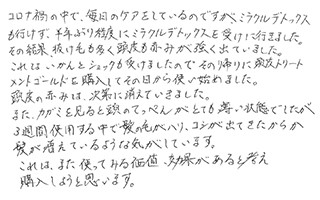 コロナ禍の中で、毎日のケアをしているのですが、ミラクルデトックス
も行けず、半年ぶり程度にミラクルデトックスを受けに行きました。
その結果、抜け毛も多く頭皮も赤みが強く出ていました。
これは、いかんとショックも受けましたのでその帰りに頭皮トリート
メントゴールドを購入してその日から使い始めました。
頭皮の赤みは、次第に消えていきました。
また、カガミを見ると頭のてっぺんがとても薄い状態でしたが、
3週間使用する中で髪の毛がハリ、コシが出てきたからか
髪が増えているような気がしています。
これは、また使ってみる価値、効果があると考え
購入しようと思います。